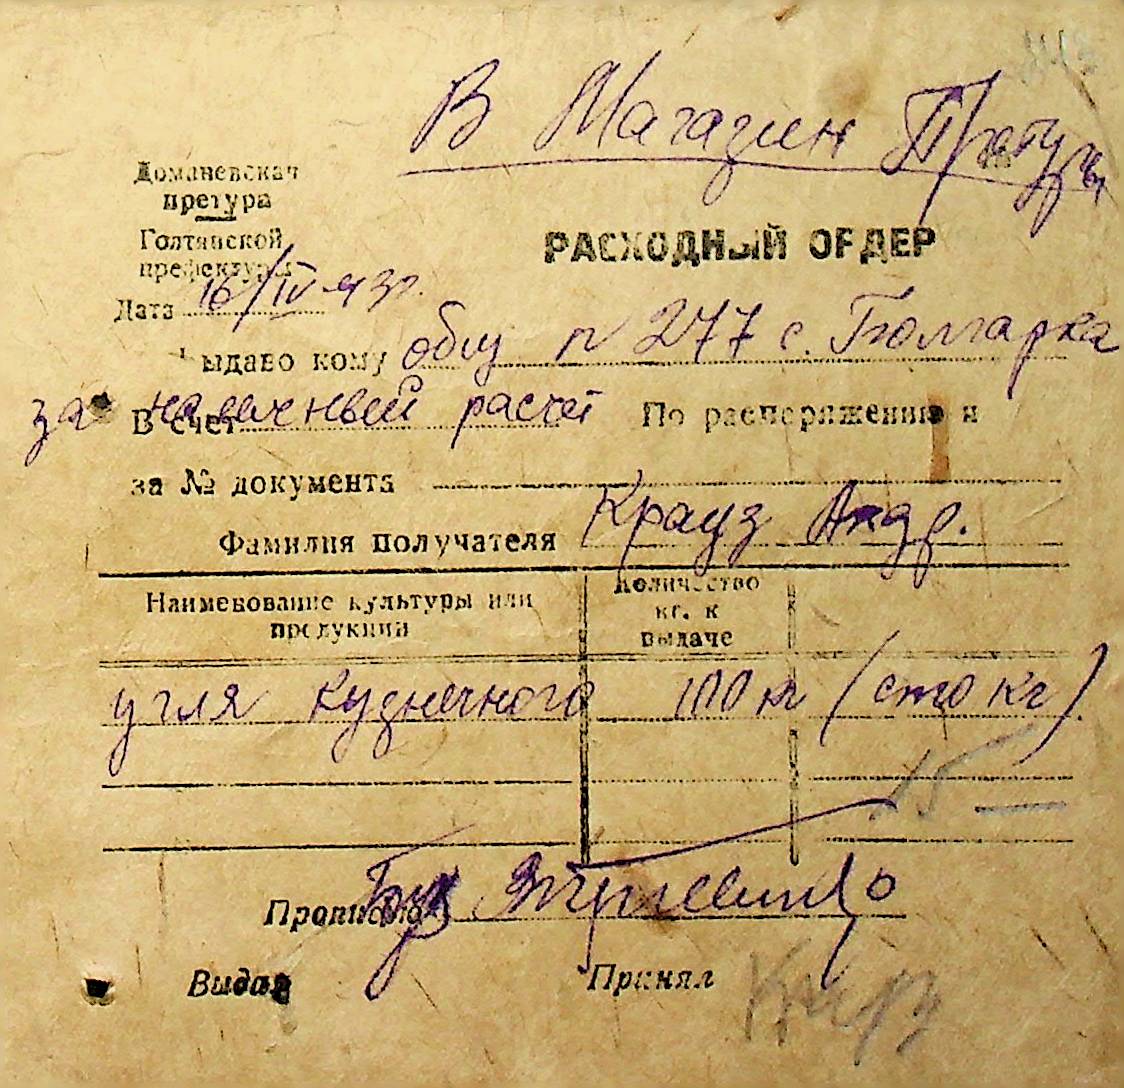 В Магазин Претуры
Доманевская
претура
Голтянской
префектуры
РАСХОДНЫЙ ОРДЕР
Дата 16/IV-43г.
Выдаво кому общ n 277 с. Болгарка
за наличный расчет
В счет По распоряжению и
за № документа
Фамилия получателя Крауз Андр.
Наименование культуры или продукции
Количество кг. к выдаче
угля кузнечного 100 кг (сто кг)
15 —
Прописал Бух
Выдал Принял